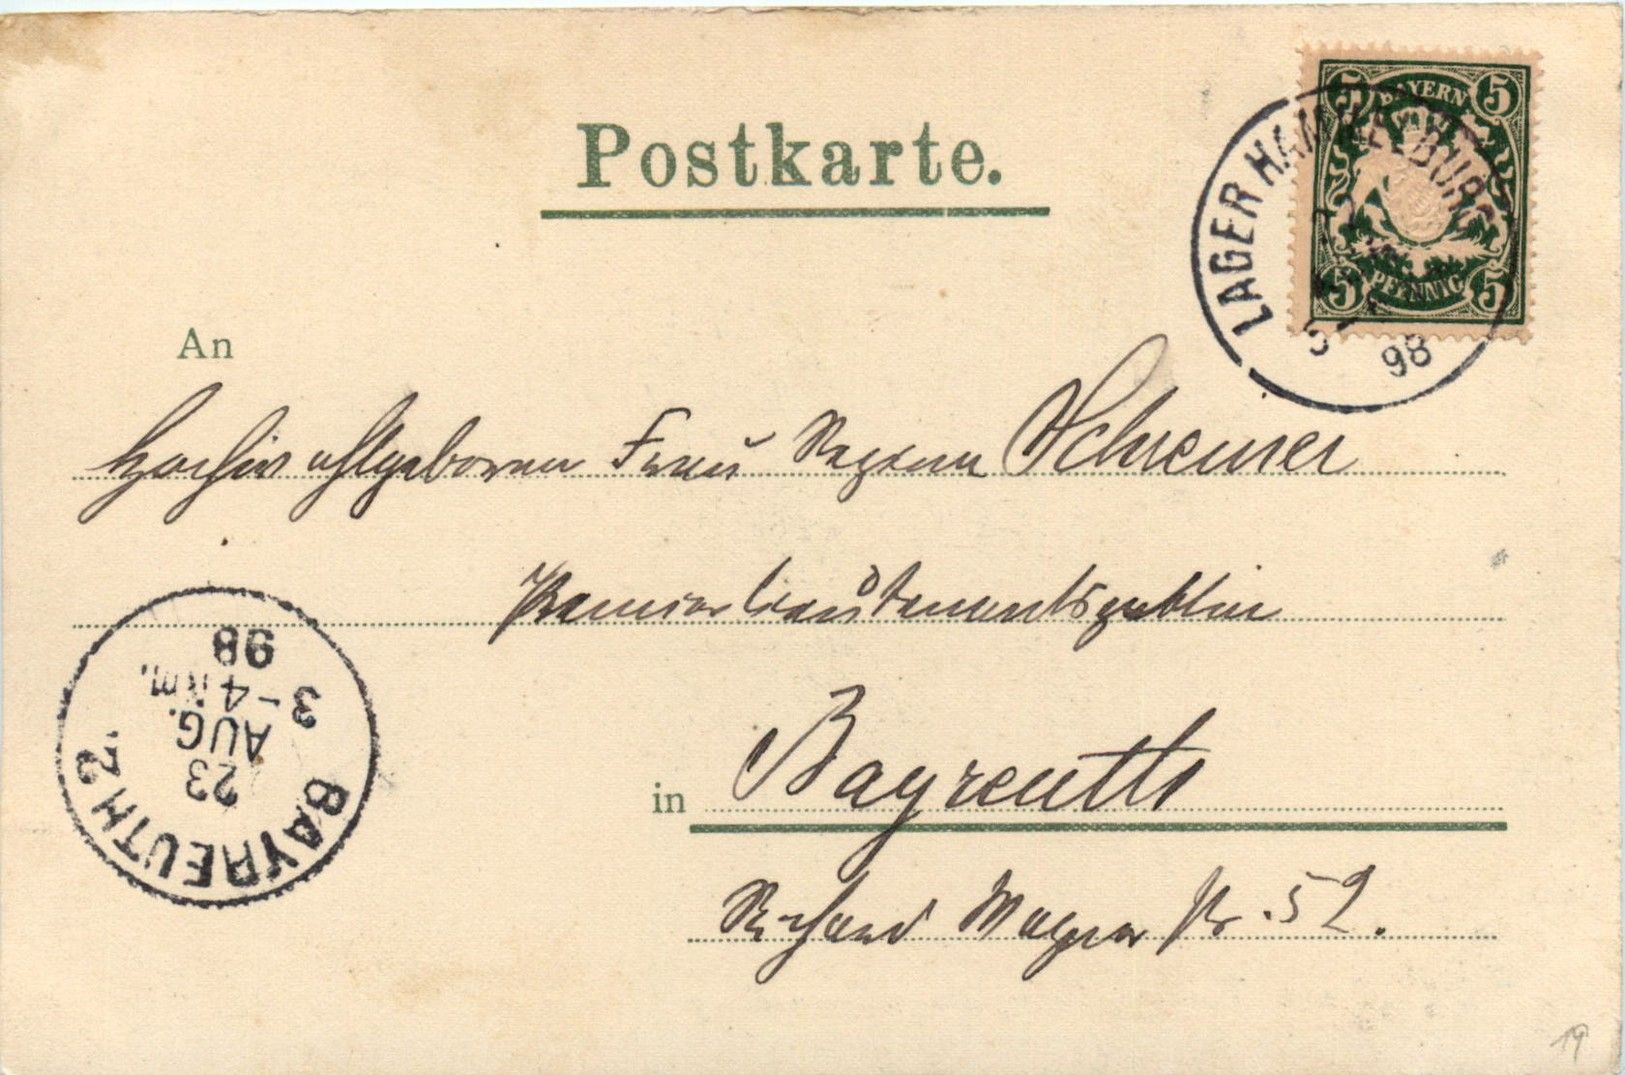 Postkarte.
5 BAYERN 5
5 PFENNIG 5
LAGER HAMMELBURG
98
An
Hochwohlgeboren Frau Regina Schreiner
Premierlieutenantsgattin
in Bayreuth
Richard Wagner Str. 52.
BAYREUTH 2.
23
AUG.
3-4 Nm.
98
19